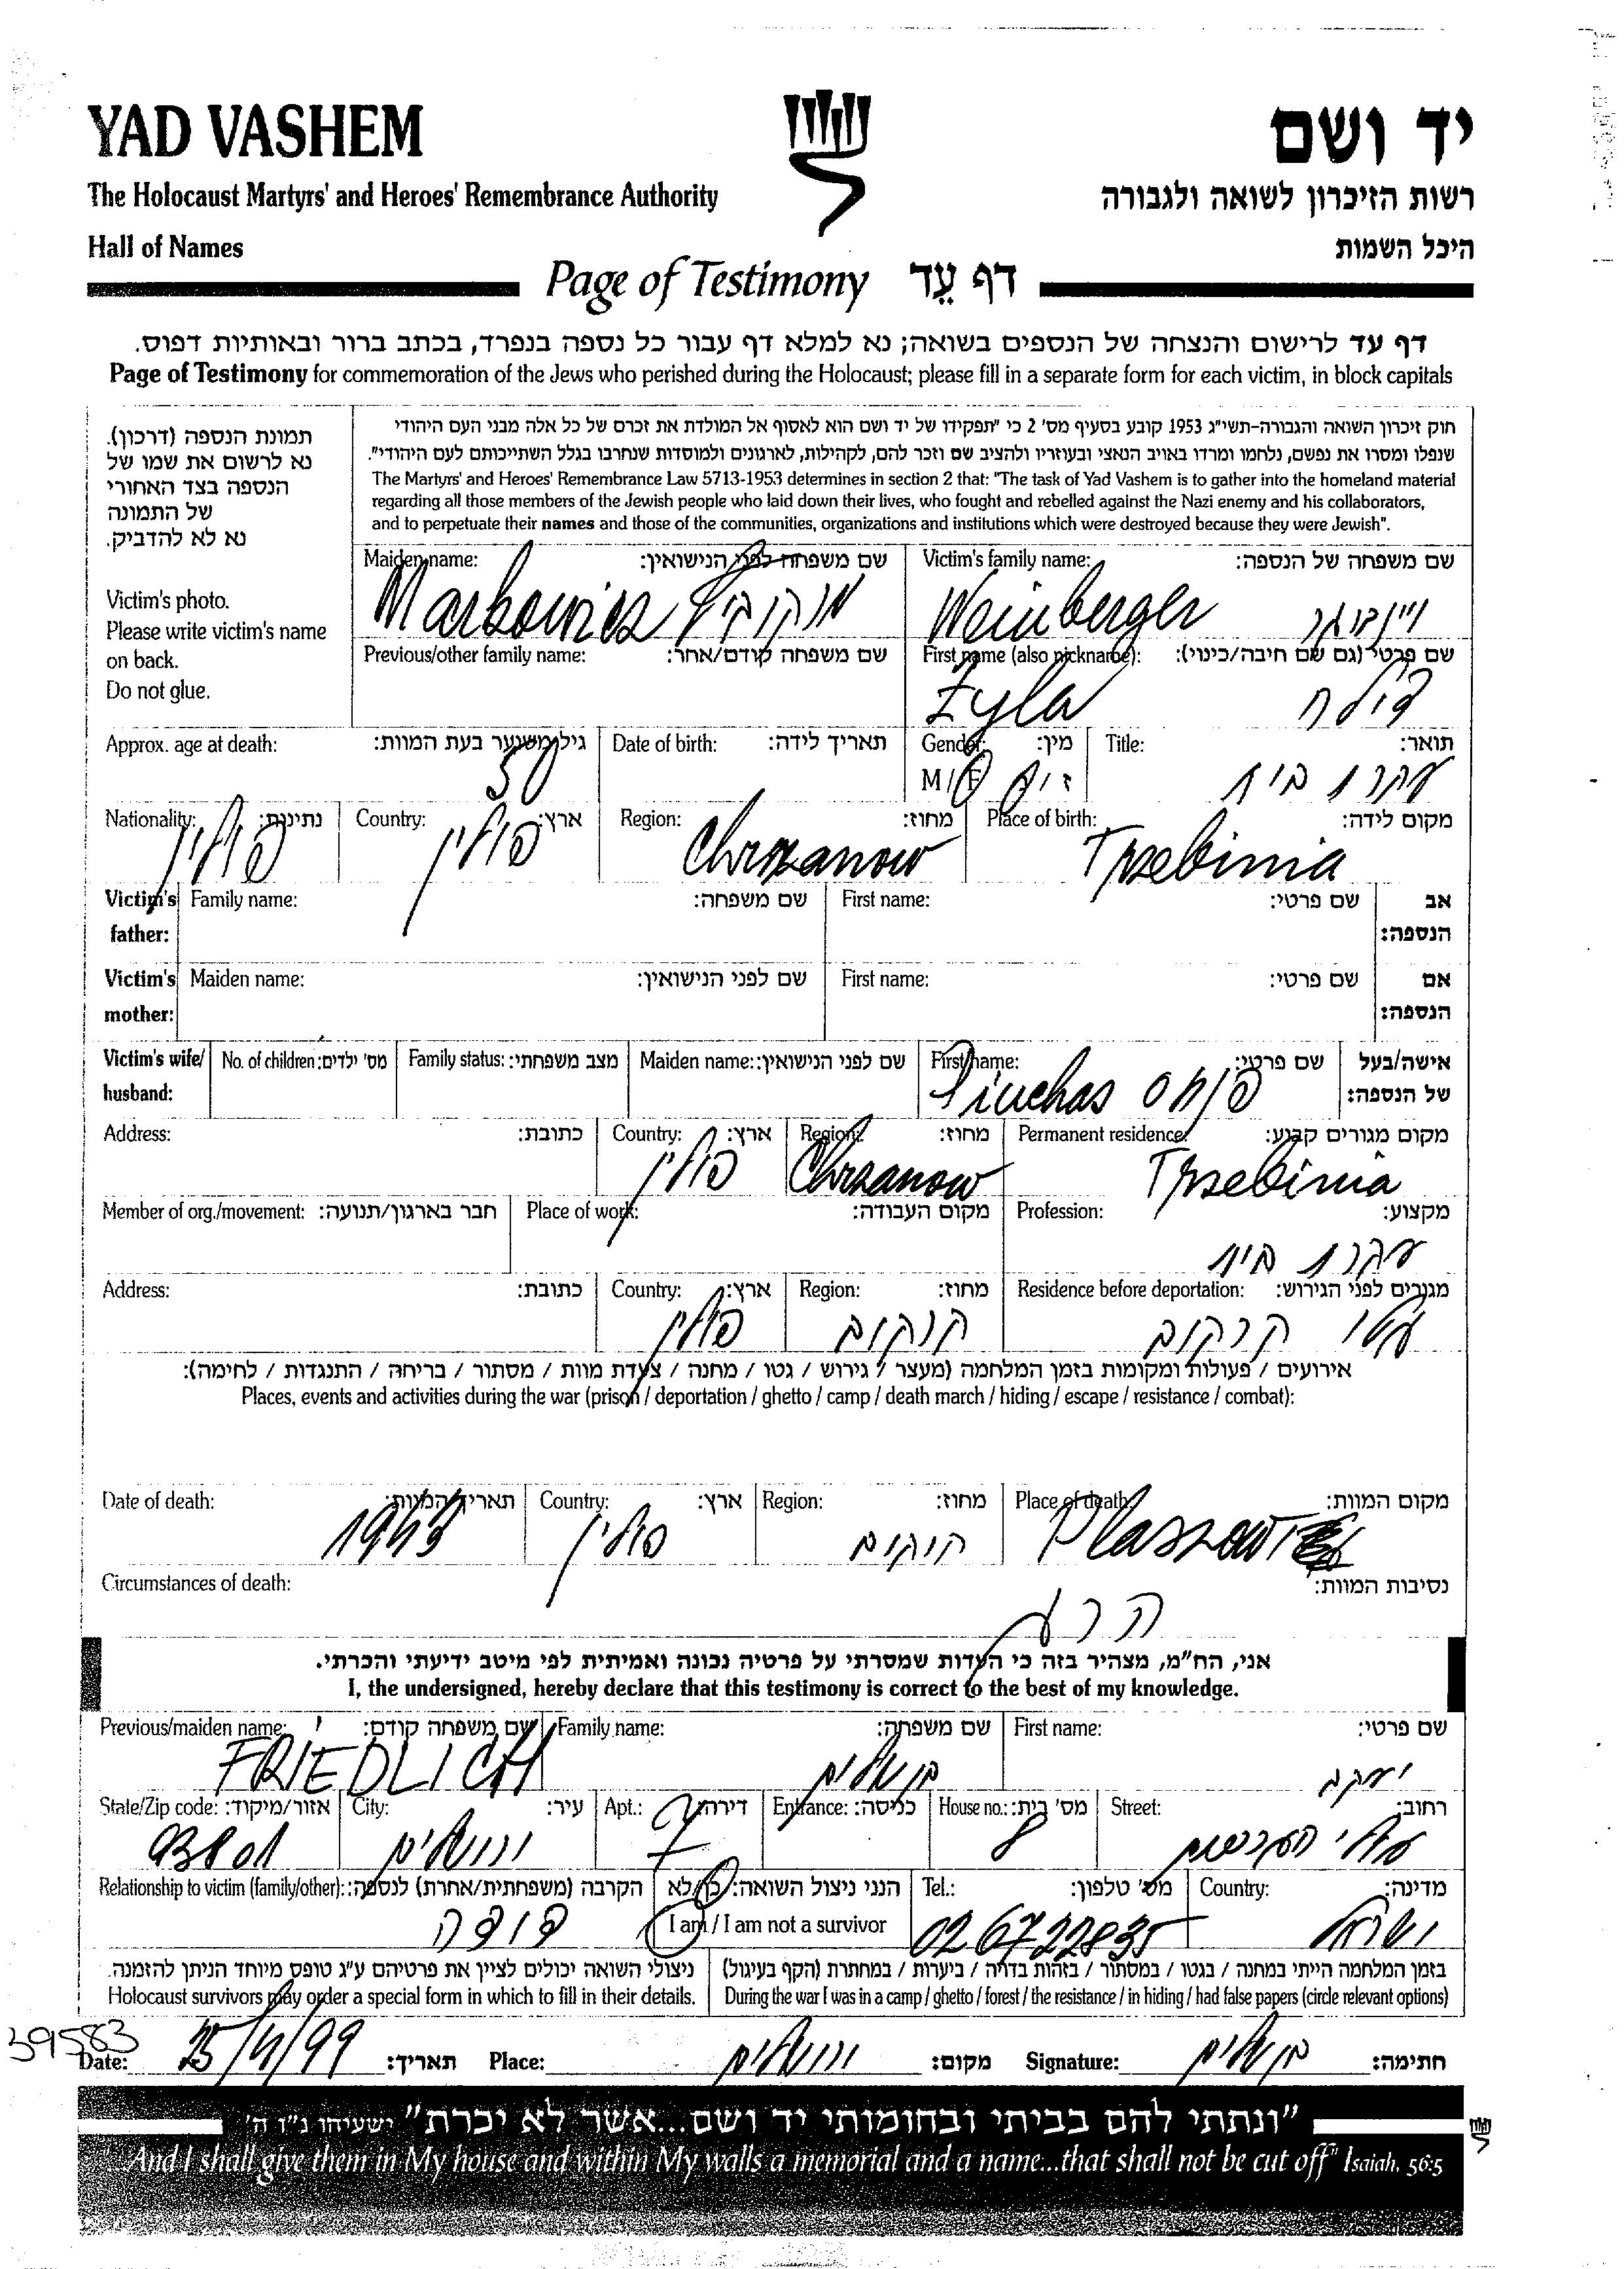 YAD VASHEM
יד ושם
The Holocaust Martyrs' and Heroes' Remembrance Authority
רשות הזיכרון לשואה ולגבורה
Hall of Names
היכל השמות
Page of Testimony דף עֵד
דף עד לרישום והנצחה של הנספים בשואה; נא למלא דף עבור כל נספה בנפרד, בכתב ברור ובאותיות דפוס.
Page of Testimony for commemoration of the Jews who perished during the Holocaust; please fill in a separate form for each victim, in block capitals
תמונת הנספה (דרכון).
נא לרשום את שמו של
הנספה בצד האחורי
של התמונה
נא לא להדביק.
Victim's photo.
Please write victim's name
on back.
Do not glue.
חוק זיכרון השואה והגבורה-תשי"ג 1953 קובע בסעיף מס' 2 כי "תפקידו של יד ושם הוא לאסוף אל המולדת את זכרם של כל אלה מבני העם היהודי
שנפלו ומסרו את נפשם, נלחמו ומרדו באויב הנאצי ובעוזריו ולהציב שם וזכר להם, לקהילות, לארגונים ולמוסדות שנחרבו בגלל השתייכותם לעם היהודי".
The Martyrs' and Heroes' Remembrance Law 5713-1953 determines in section 2 that: "The task of Yad Vashem is to gather into the homeland material
regarding all those members of the Jewish people who laid down their lives, who fought and rebelled against the Nazi enemy and his collaborators,
and to perpetuate their names and those of the communities, organizations and institutions which were destroyed because they were Jewish".
Maiden name: שם משפחה לפני הנישואין: Victim's family name: שם משפחה של הנספה:
Markowicz מרקוביץ Weinberger ויינברגר
Previous/other family name: שם משפחה קודם/אחר: First name (also nickname): שם פרטי (גם שם חיבה/כינוי):
Zyla
Approx. age at death: גיל משוער בעת המוות: Date of birth: תאריך לידה: Gender: מין: Title: תואר:
50 M/F ז/נ עקרת בית
Nationality: נתינות: Country: ארץ: Region: מחוז: Place of birth: מקום לידה:
פולין פולין Chrzanow Trzebinia
Victim's father: Family name: שם משפחה: First name: שם פרטי: אב הנספה:
Victim's mother: Maiden name: שם לפני הנישואין: First name: שם פרטי: אם הנספה:
Victim's wife/ husband: No. of children: מס' ילדים: Family status: מצב משפחתי: Maiden name: שם לפני הנישואין: First name: שם פרטי: אישה/בעל של הנספה:
Pinchas פנחס
Address: כתובת: Country: ארץ: Region: מחוז: Permanent residence: מקום מגורים קבוע:
פולין Chrzanow Trzebinia
Member of org./movement: חבר בארגון/תנועה: Place of work: מקום העבודה: Profession: מקצוע:
עקרת בית
Address: כתובת: Country: ארץ: Region: מחוז: Residence before deportation: מגורים לפני הגירוש:
פולין קרקוב גטו קרקוב
אירועים / פעולות ומקומות בזמן המלחמה (מעצר / גירוש / גטו / מחנה / צעדת מוות / מסתור / בריחה / התנגדות / לחימה):
Places, events and activities during the war (prison / deportation / ghetto / camp / death march / hiding / escape / resistance / combat):
Date of death: תאריך המוות: Country: ארץ: Region: מחוז: Place of death: מקום המוות:
1943 פולין קרקוב Plaszow
Circumstances of death: נסיבות המוות:
הרג
אני, הח"מ, מצהיר בזה כי העדות שמסרתי על פרטיה נכונה ואמיתית לפי מיטב ידיעתי והכרתי.
I, the undersigned, hereby declare that this testimony is correct to the best of my knowledge.
Previous/maiden name: שם משפחה קודם: Family name: שם משפחה: First name: שם פרטי:
FRIEDLICH בן שלום יעקב
State/Zip code: אזור/מיקוד: City: עיר: Apt.: דירה: Entrance: כניסה: House no.: מס' בית: Street: רחוב:
93801 ירושלים 7 8
Relationship to victim (family/other): הקרבה (משפחתית/אחרת) לנספה: הנני ניצול השואה: כן/לא Tel.: מס' טלפון: Country: מדינה:
דודה I am / I am not a survivor 02 6722835 ישראל
ניצולי השואה יכולים לציין את פרטיהם ע"ג טופס מיוחד הניתן להזמנה.
Holocaust survivors may order a special form in which to fill in their details.
בזמן המלחמה הייתי במחנה / בגטו / במסתור / בזהות בדויה / ביערות / במחתרת (הקף בעיגול)
During the war I was in a camp / ghetto / forest / the resistance / in hiding / had false papers (circle relevant options)
39583
Date: 25/4/99 תאריך: Place: ירושלים מקום: Signature: בן שלום חתימה:
"ונתתי להם בביתי ובחומותי יד ושם...אשר לא יכרת" ישעיהו נ"ו ה'
"And I shall give them in My house and within My walls a memorial and a name...that shall not be cut off" Isaiah, 56:5